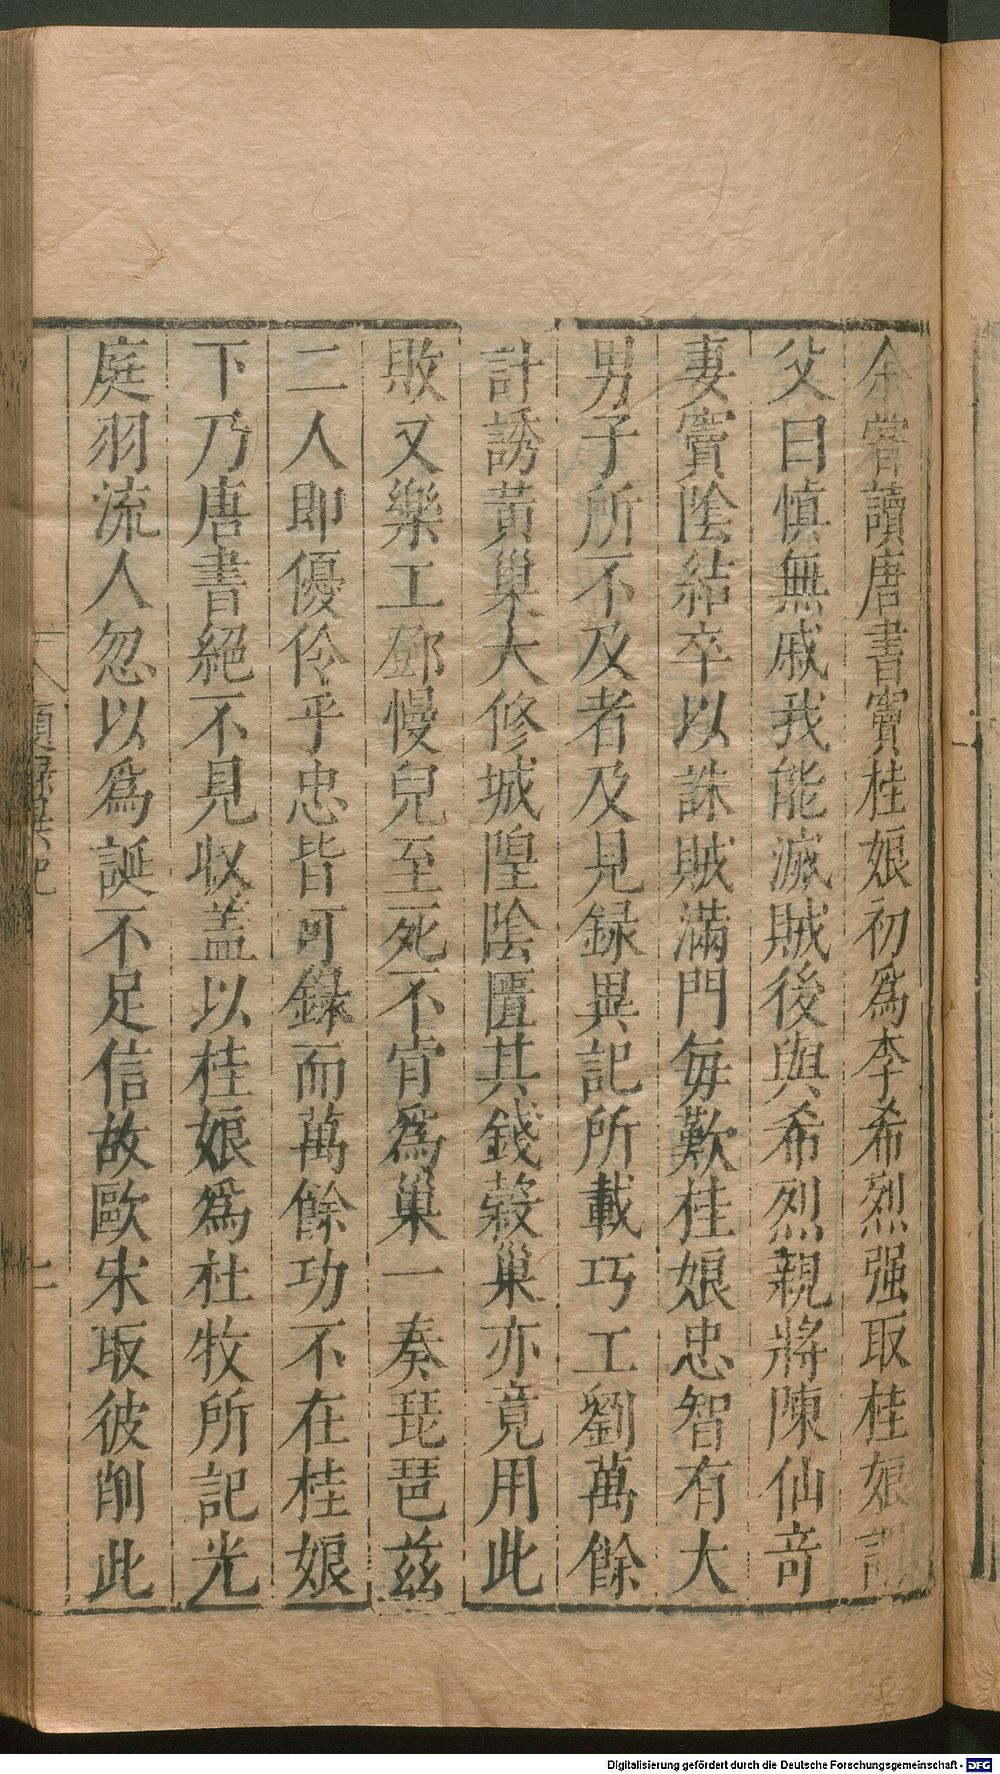 余嘗讀唐書竇桂娘初爲李希烈强取桂娘謂
父曰慎無戚我能滅賊後與希烈親將陳仙竒
妻竇陰結卒以誅賊滿門每歎桂娘忠智有大
男子所不及者及見録異記所載巧工劉萬餘
計誘黃巢大修城隍陰匱其錢榖巢亦竟用此
敗又樂工鄧慢兒至死不肯爲巢一奏琵琶兹
二人即優伶乎忠皆可錄而萬餘功不在桂娘
下乃唐書絕不見収盖以桂娘爲杜牧所記光
庭羽流人忽以爲誕不足信故歐宋取彼削此
Digitalisierung gefördert durch die Deutsche Forschungsgemeinschaft - DFG